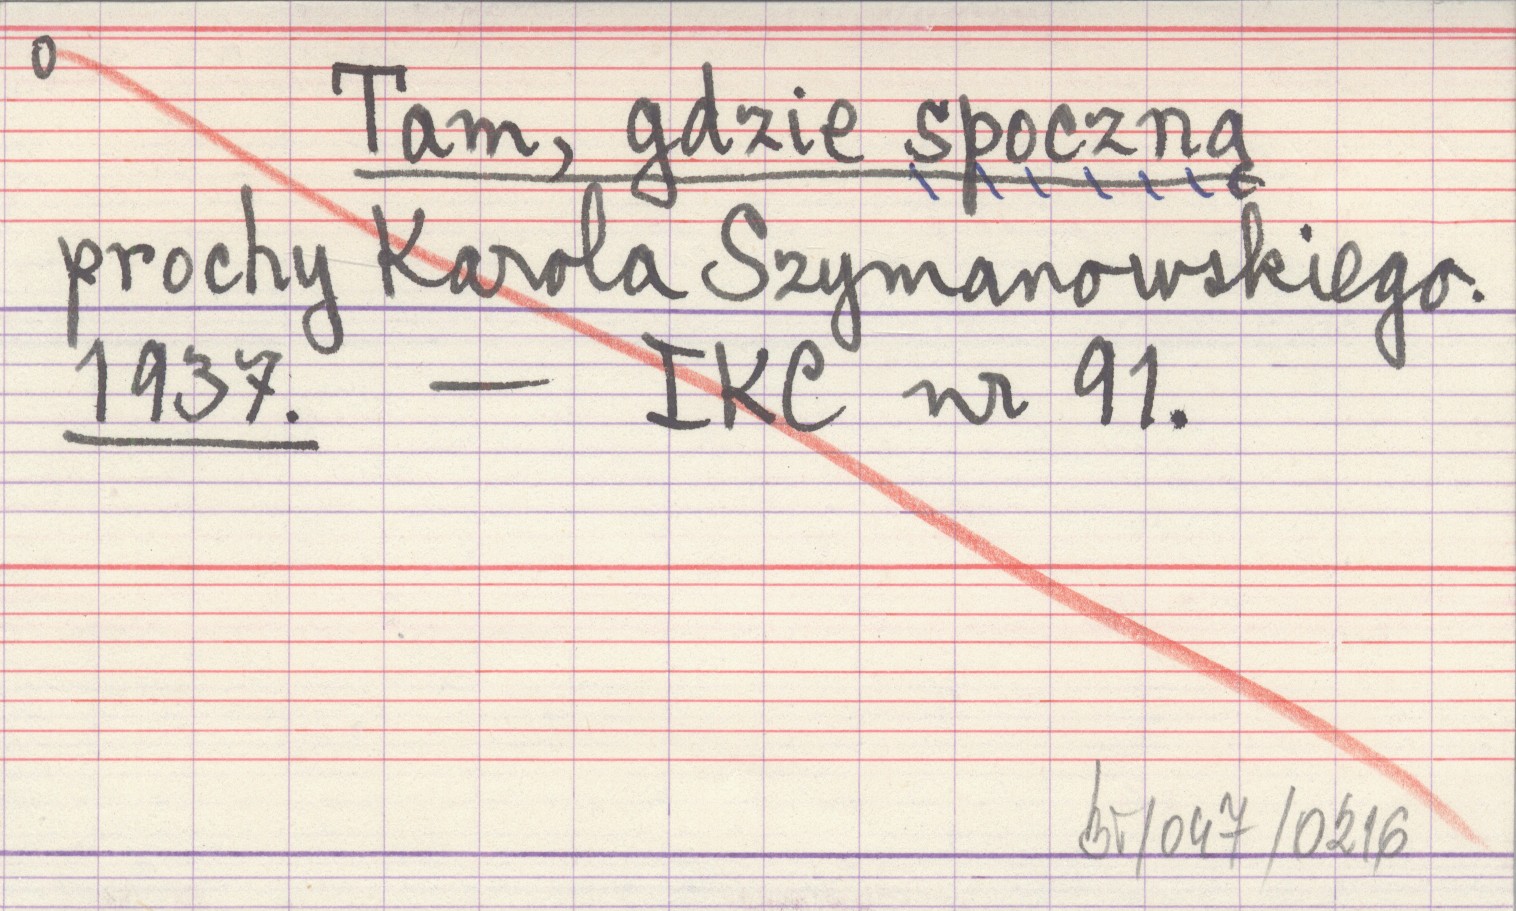 0
Tam, gdzie spoczną
prochy Karola Szymanowskiego.
1937. — IKC nr 91.
/047/0216